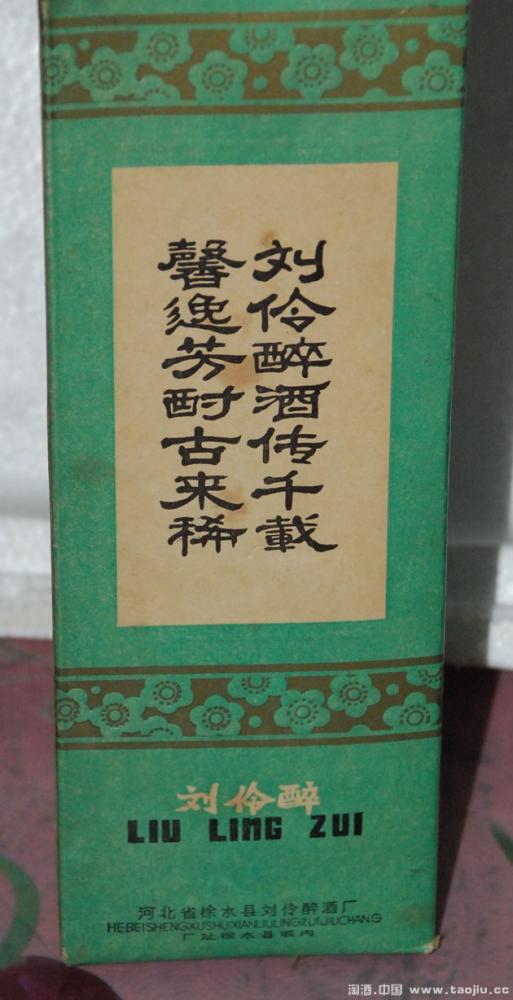 刘伶醉酒传千載
馨逸芳酎古来稀
刘伶醉
LIU LING ZUI
河北省徐水县刘伶醉酒厂
HEBEISHENGXUSHUIXIANLIULINGZUIJIUCHANG
厂址徐水县城内
淘酒.中国 www.taojiu.cc